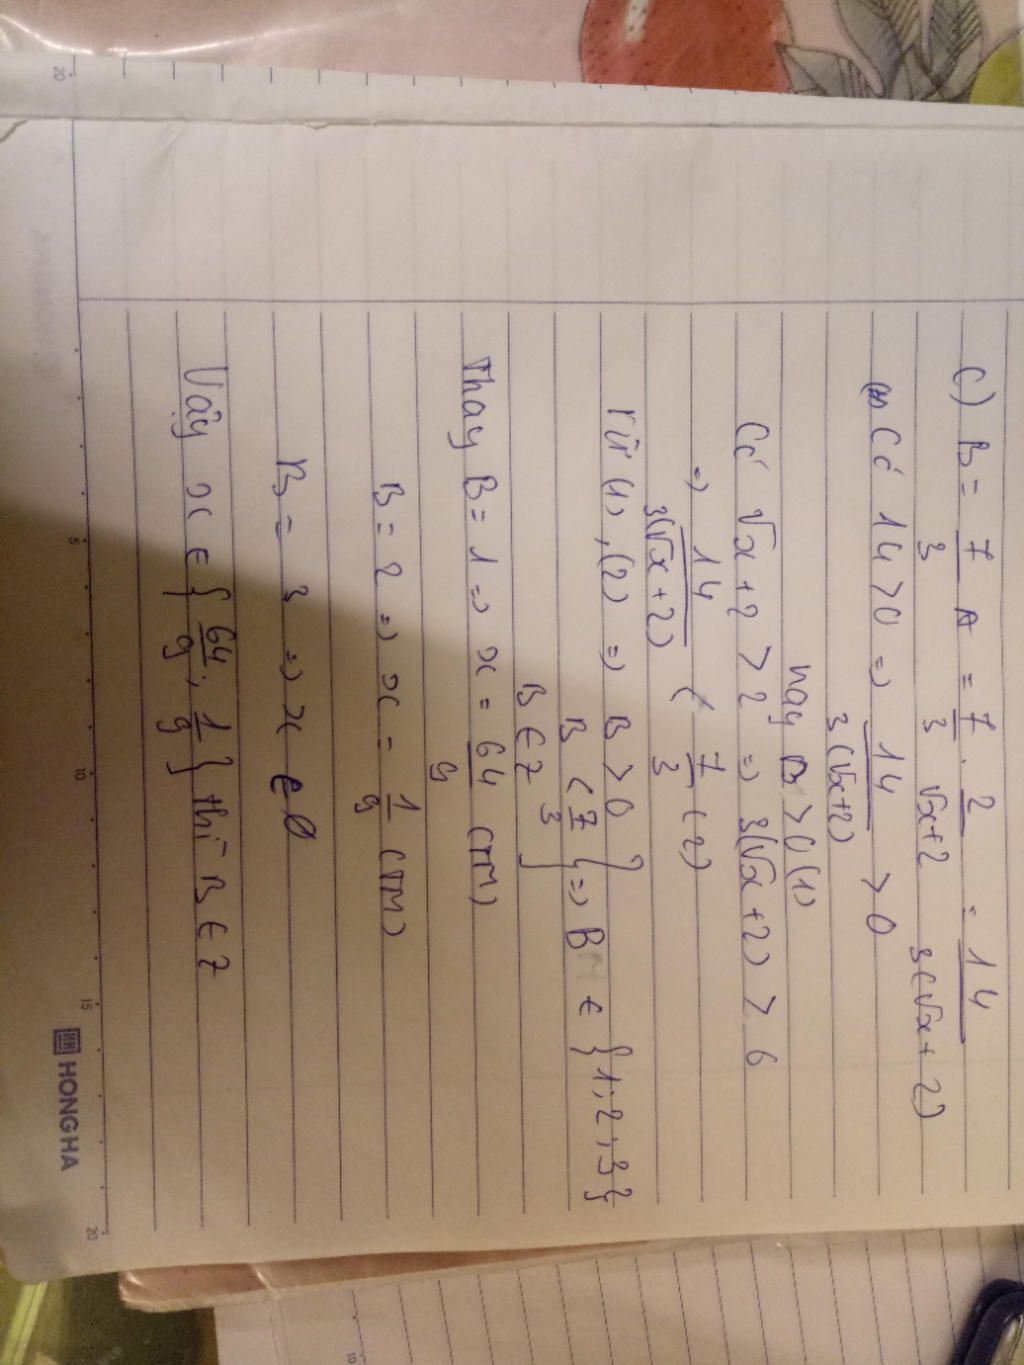 c) B = 7/3 A = 7/3 . 2/(√x+2) = 14/(3(√x+2))
Có 14 > 0 => 14/(3(√x+2)) > 0
hay B > 0 (1)
Có √x+2 > 2 => 3(√x+2) > 6
=> 14/(3(√x+2)) < 7/3 (2)
Từ (1), (2) => B > 0
B < 7/3 } => B ∈ {1; 2; 3}
B ∈ Z
Thay B = 1 => x = 64/9 (TM)
B = 2 => x = 1/9 (TM)
B = 3 => x ∈ ∅
Vậy x ∈ {64/9; 1/9} thì B ∈ Z
HONG HA
20
5
10
15
20
10